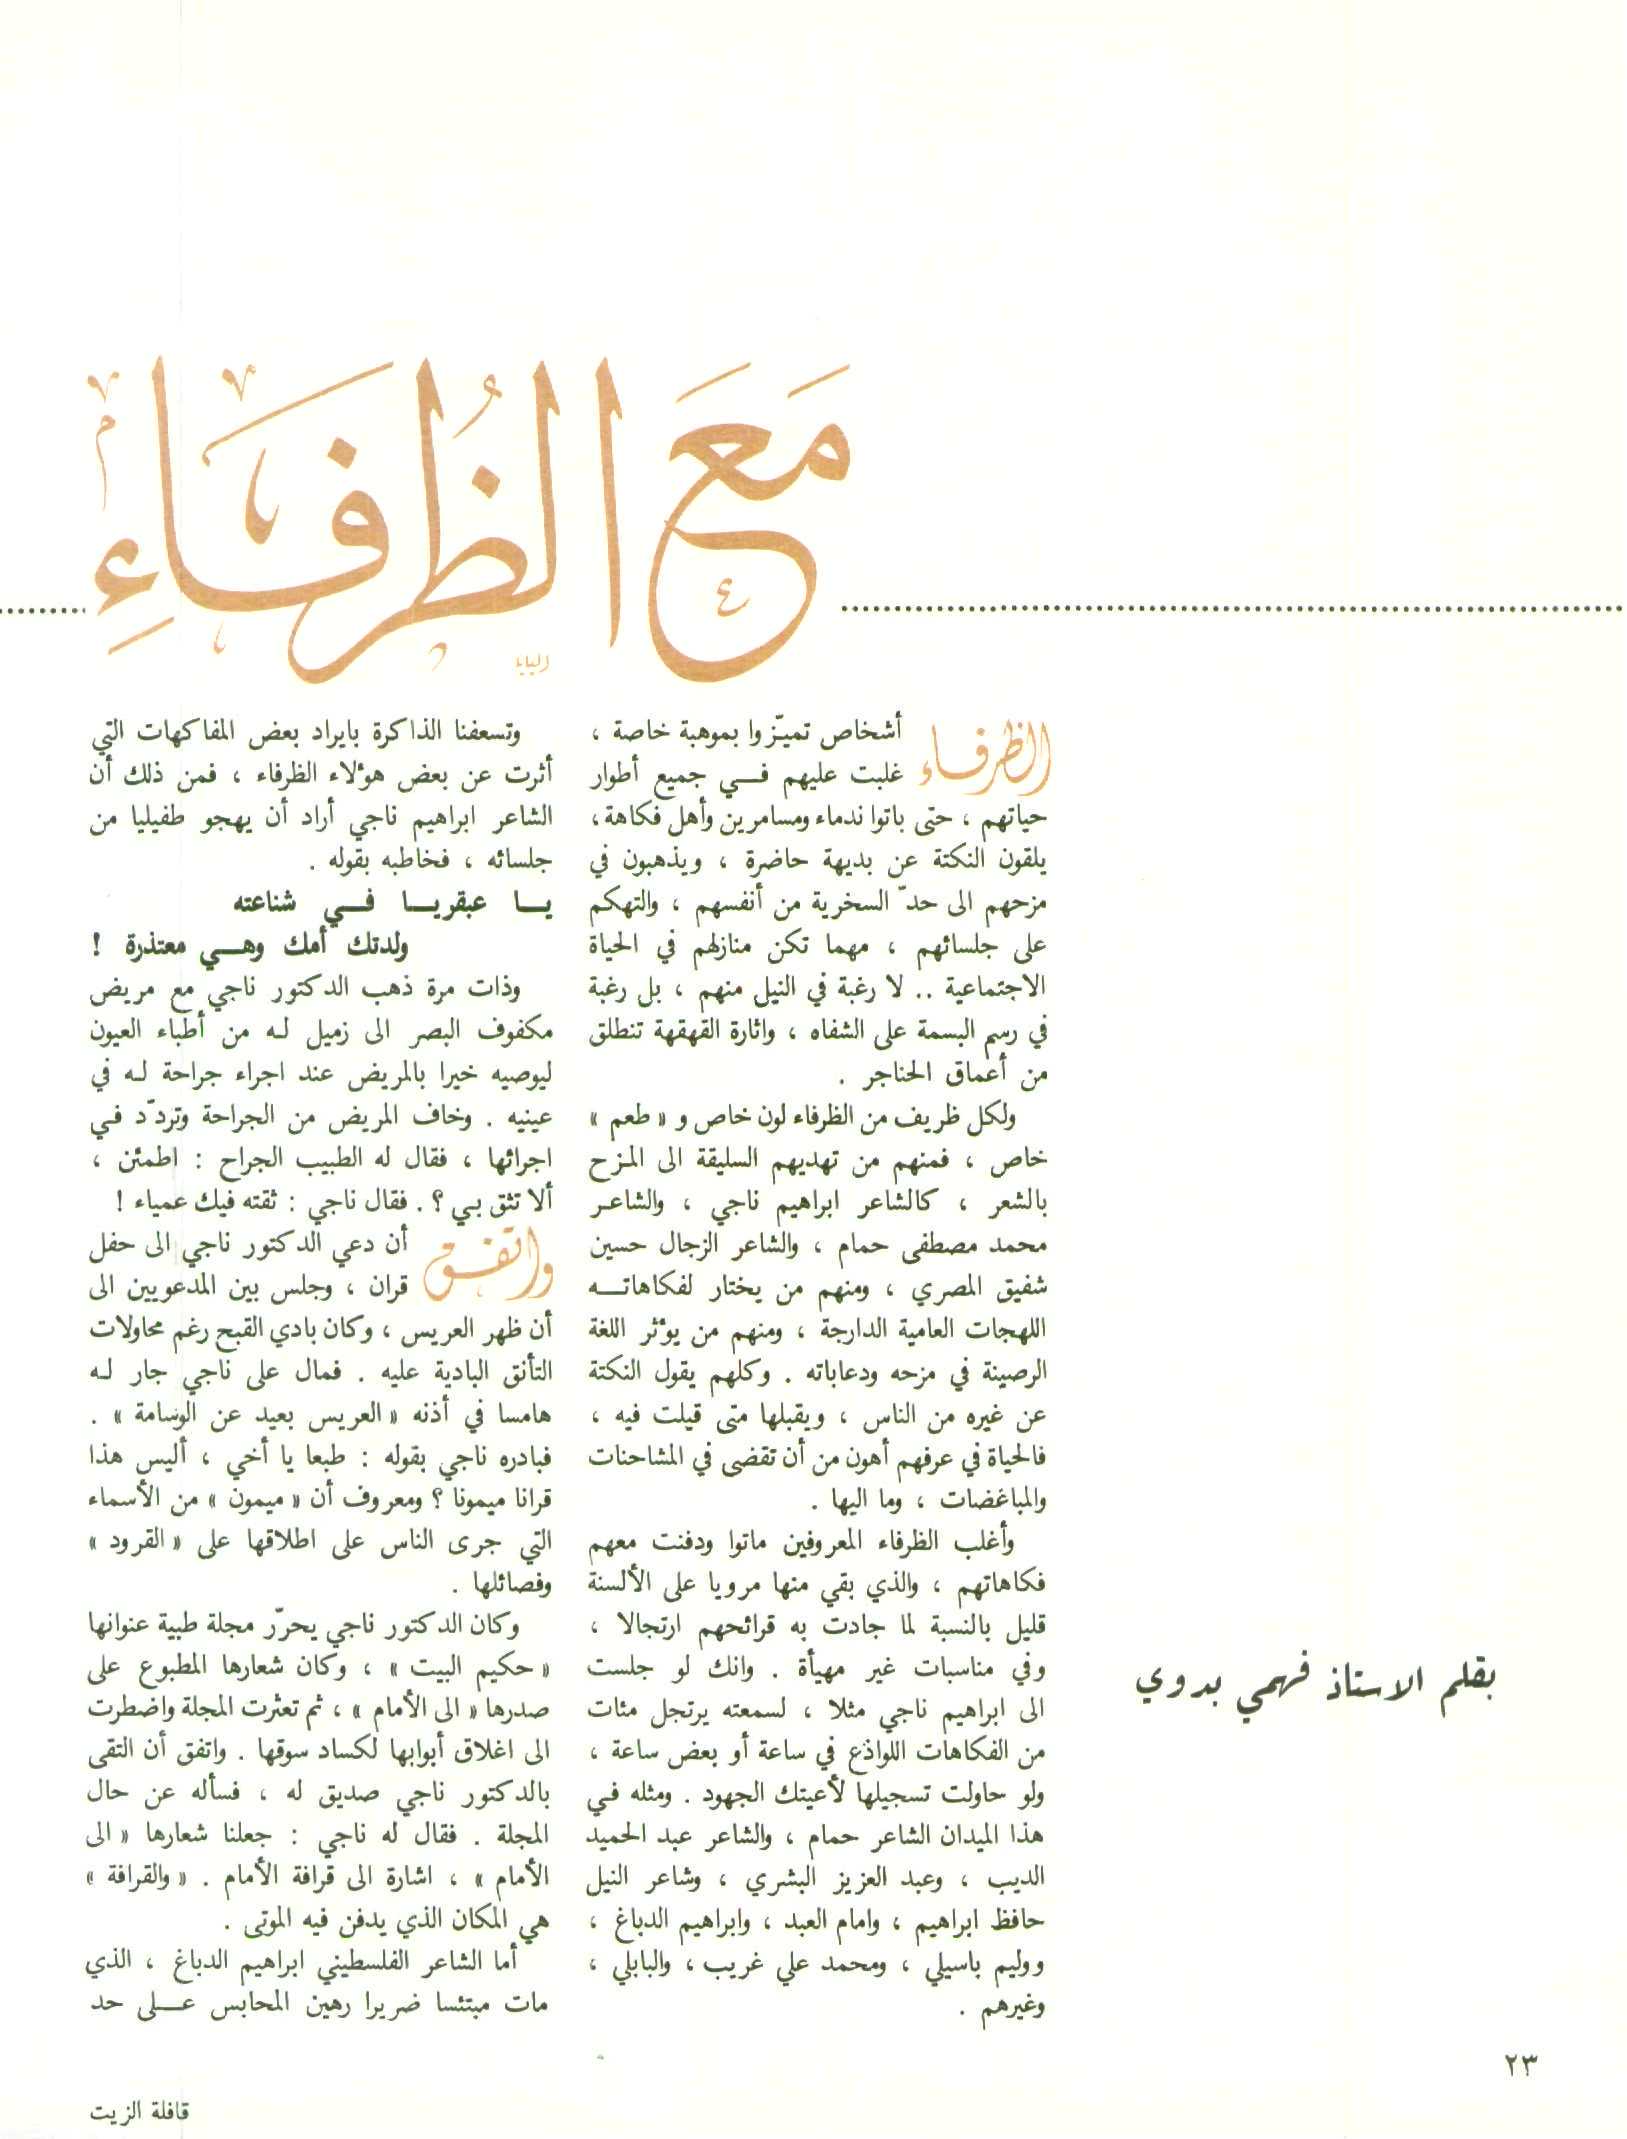 مَعَ الظُرفَاءِ
بقلم الاستاذ فهمي بدوي
الظرفاء أشخاص تميّزوا بموهبة خاصة ،
غلبت عليهم فـــي جميع أطوار
حياتهم ، حتى باتوا ندماء ومسامرين وأهل فكاهة،
يلقون النكتة عن بديهة حاضرة ، ويذهبون في
مزحهم الى حدّ السخرية من أنفسهم ، والتهكم
على جلسائهم ، مهما تكن منازلهم في الحياة
الاجتماعية .. لا رغبة في النيل منهم ، بل رغبة
في رسم البسمة على الشفاه ، واثارة القهقهة تنطلق
من أعماق الحناجر .
ولكل ظريف من الظرفاء لون خاص و « طعم »
خاص ، فمنهم من تهديهم السليقة الى المزح
بالشعر ، كالشاعر ابراهيم ناجي ، والشاعر
محمد مصطفى حمام ، والشاعر الزجال حسين
شفيق المصري ، ومنهم من يختار لفكاهاتـــه
اللهجات العامية الدارجة ، ومنهم من يؤثر اللغة
الرصينة في مزحه ودعاباته . وكلهم يقول النكتة
عن غيره من الناس ، ويقبلها متى قيلت فيه ،
فالحياة في عرفهم أهون من أن تقضى في المشاحنات
والمباغضات ، وما اليها .
وأغلب الظرفاء المعروفين ماتوا ودفنت معهم
فكاهاتهم ، والذي بقي منها مرويا على الألسنة
قليل بالنسبة لما جادت به قرائحهم ارتجالا ،
وفي مناسبات غير مهيأة . وانك لو جلست
الى ابراهيم ناجي مثلا ، لسمعته يرتجل مئات
من الفكاهات اللواذع في ساعة أو بعض ساعة ،
ولو حاولت تسجيلها لأعيتك الجهود . ومثله في
هذا الميدان الشاعر حمام ، والشاعر عبد الحميد
الديب ، وعبد العزيز البشري ، وشاعر النيل
حافظ ابراهيم ، وامام العبد ، وابراهيم الدباغ ،
ووليم باسيلي ، ومحمد علي غريب ، والبابلي ،
وغيرهم .
وتسعفنا الذاكرة بايراد بعض المفاكهات التي
أثرت عن بعض هؤلاء الظرفاء ، فمن ذلك أن
الشاعر ابراهيم ناجي أراد أن يهجو طفيليا من
جلسائه ، فخاطبه بقوله .
يـــا عبقريـــا فـــي شناعته
ولدتك أمك وهـــي معتذرة !
وذات مرة ذهب الدكتور ناجي مع مريض
مكفوف البصر الى زميل لـه من أطباء العيون
ليوصيه خيرا بالمريض عند اجراء جراحة لـه في
عينيه . وخاف المريض من الجراحة وتردّد في
اجرائها ، فقال له الطبيب الجراح : اطمئن ،
ألا تثق بي ؟ . فقال ناجي : ثقته فيك عمياء !
واتفق أن دعي الدكتور ناجي الى حفل
قران ، وجلس بين المدعويين الى
أن ظهر العريس ، وكان بادي القبح رغم محاولات
التأنق البادية عليه . فمال على ناجي جار لـه
هامسا في أذنه « العريس بعيد عن الوسامة » .
فبادره ناجي بقوله : طبعا يا أخي ، أليس هذا
قرانا ميمونا ؟ ومعروف أن « ميمون » من الأسماء
التي جرى الناس على اطلاقها على « القرود »
وفصائلها .
وكان الدكتور ناجي يحرّر مجلة طبية عنوانها
« حكيم البيت » ، وكان شعارها المطبوع على
صدرها « الى الأمام » ، ثم تعثرت المجلة واضطرت
الى اغلاق أبوابها لكساد سوقها . واتفق أن التقى
بالدكتور ناجي صديق له ، فسأله عن حال
المجلة . فقال له ناجي : جعلنا شعارها « الى
الأمام » ، اشارة الى قرافة الأمام . « والقرافة »
هي المكان الذي يدفن فيه الموتى .
أما الشاعر الفلسطيني ابراهيم الدباغ ، الذي
مات مبتئسا ضريرا رهين المحابس عـــلى حد
٢٣
قافلة الزيت